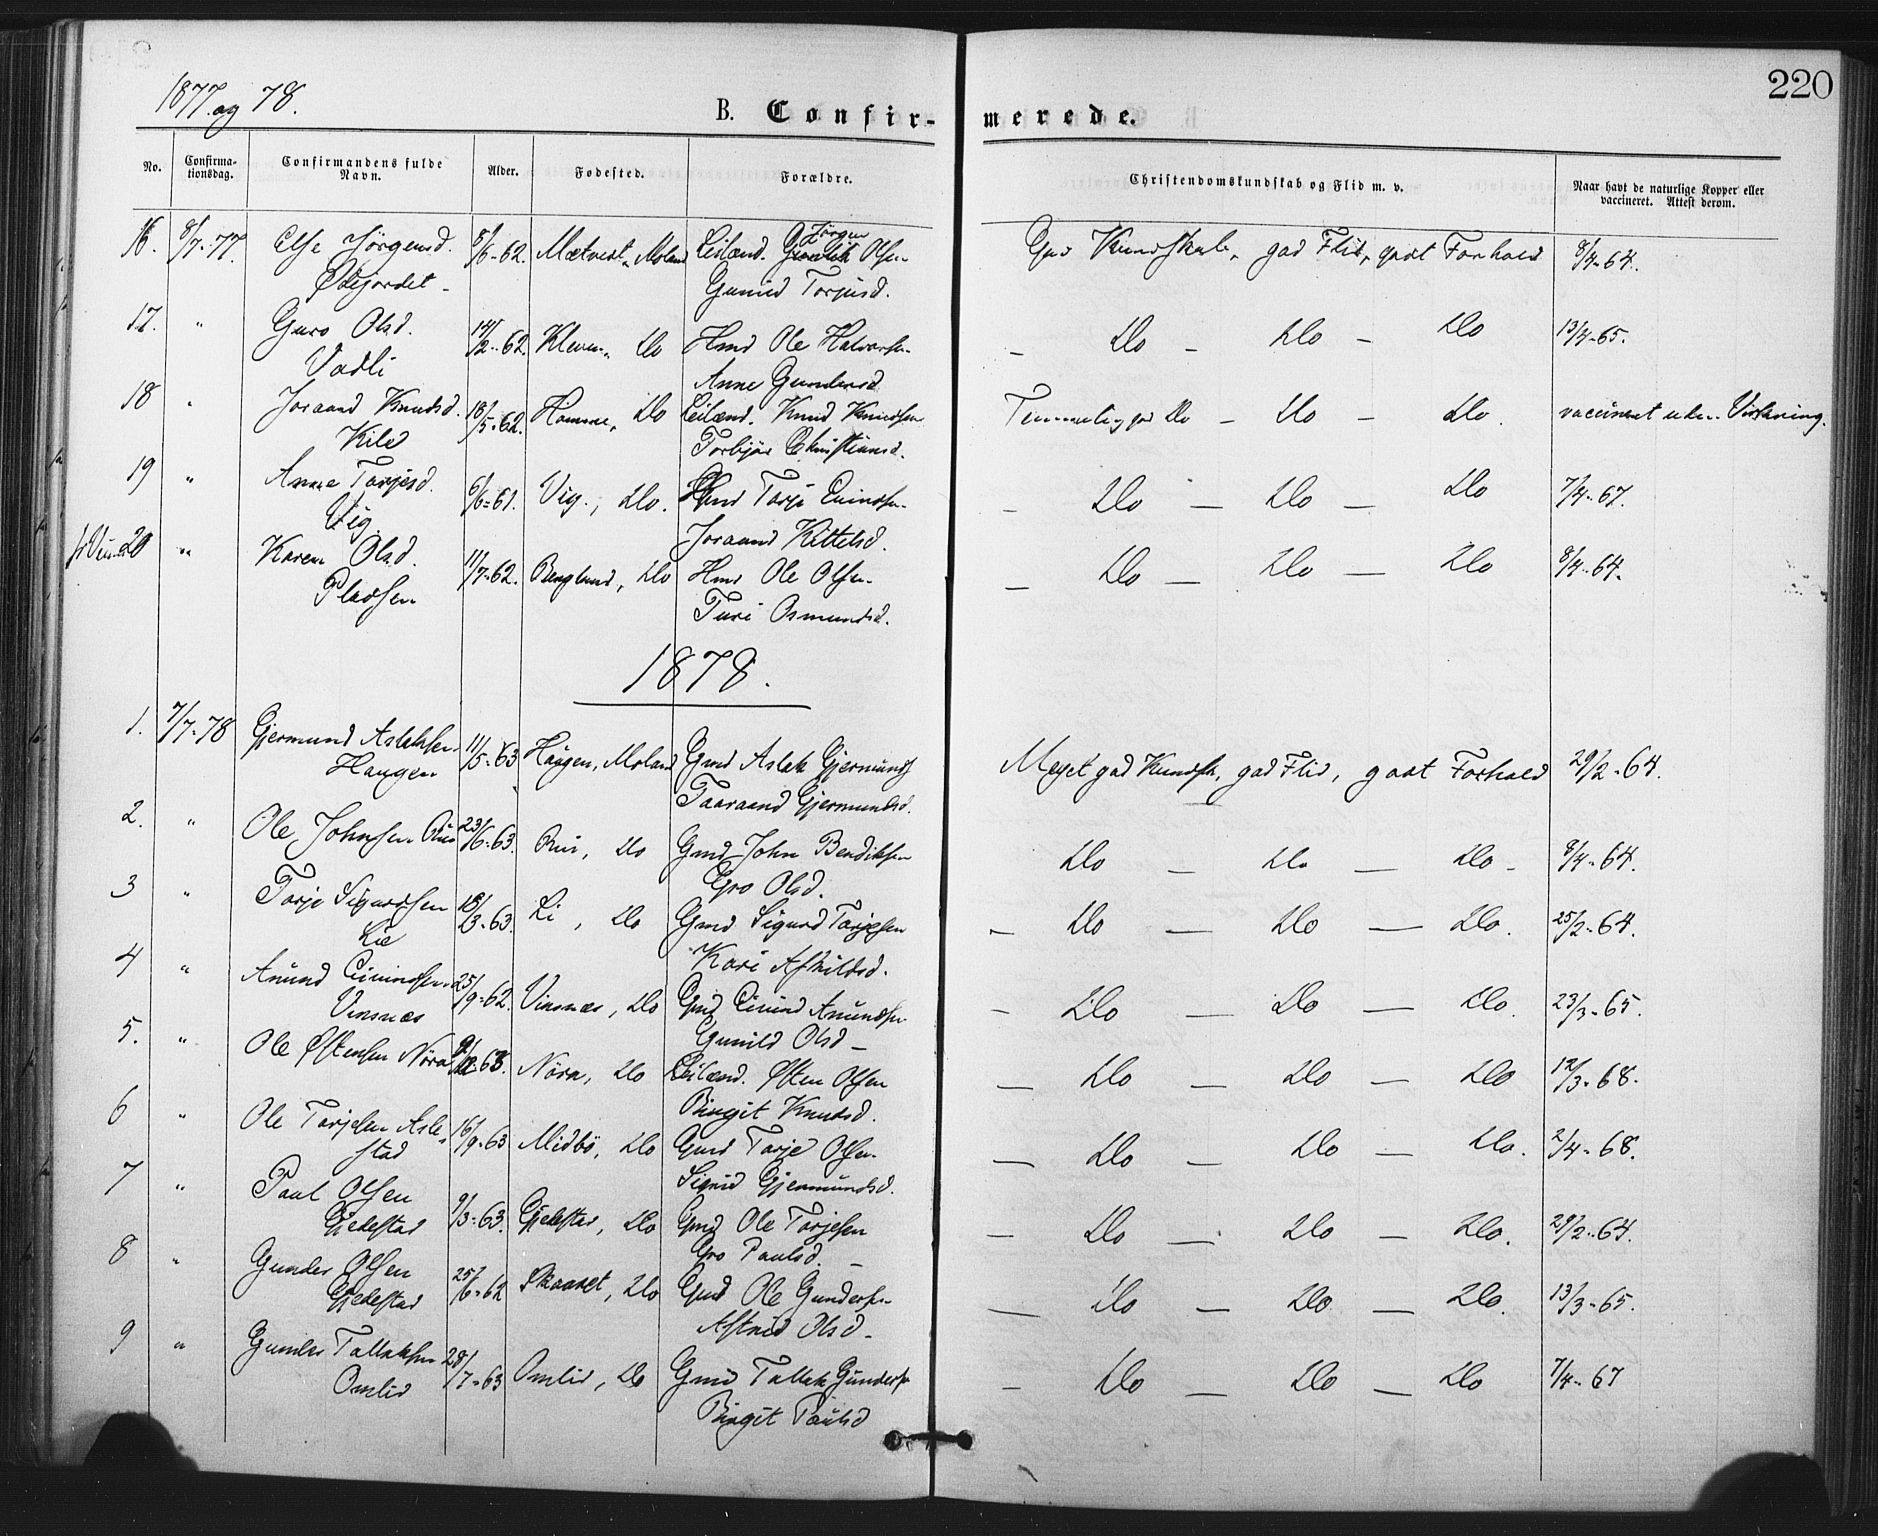 1877 og 78.
220
B. Confir-merede.
No.
Confirma-
tionsdag.
Confirmandens fulde
Navn.
Alder.
Fødested.
Forældre.
Christendomskundskab og Flid m. v.
Naar havt de naturlige Kopper eller
vaccineret. Attest derom.
16. 8/7-77. Else Jörgensd. 8/6-62. Moland Leilænd. Jörgen Olsen God Kundskab, god Flid, godt Forhold 8/4-64.
Gunild Torjusd.
17. " Guro Olsd. 14/2-62. Kleven, Do Hmd Ole Halvorsen - Do - Do - Do 13/4-65.
Vadli
Anne Gundersd
18 " Joraand Knudsd. 18/5-62. Homme, Do Leilænd. Knud Knudsen Temmelig god Do - Do - Do. vaccineret uden Virkning.
Kile
Torbjør Christiansd.
19 " Anne Torjesd. 6/6-61. Vig, Do. Torje Eivindsen - Do - Do - Do 7/4-67.
Vig
Joraand Kittelsd.
20 " Karen Olsd. 11/7-62. Berglund, Do Hmd Ole Olsen - Do - Do - Do 8/4-64.
Pladsen
Turi Osmundsd.
1878.
1. 7/7-78 Gjermund Aslaksen 11/5-63 Haugen, Moland Gmd Aslak Gjermunds Meget god Kundsk, god Flid, godt Forhold 29/2-64.
Haugen
Taaraand Gjermundsd.
2. " Ole Johnsen Rui 23/6-63. Rui, Do Gmd John Bendiksen Do - Do - Do - 8/4-64.
Gro Olsd.
3 " Torje Sigurdsen 18/3-63. Li, Do Gmd Sigurd Torjesen - Do - Do - Do. 25/2-64.
Lie
Kari Ashildsd.
4 " Anund Eivindsen 25/9-62. Vinsnæs, Do Gmd Eivind Anundsen - Do - Do - Do. 23/3-65.
Vinsnæs
Gunild Olsd -
5. " Ole Østensen Nöra 63. Nöra, Do Leilænd. Østen Olsen - Do - Do - Do 12/3-68.
Birgit Knudsd.
6 " Ole Torjesen Asle- 16/9-63 Midbö, Do Gmd Torje Olsen. - Do - Do - Do. 2/4-68.
stad
Signe Gjermundsd.
7 " Paul Olsen 9/3-63. Gjedestad, Do Gmd Ole Torjesen - Do - Do - Do. 29/2-64.
Gjedestad
Gro Paulsd. -
8 " Gunder Olsen 25/6-62 Skaaret, Do Gmd Ole Gundersen - Do - Do - Do. 13/3-65.
Gjedestad
Astrid Olsd -
9 " Gunder Tallaksen 28/7-63 Omlid, Do Gmd Tallak Gunders - Do - Do - Do 7/4-67
Omlid
Birgit Paulsd